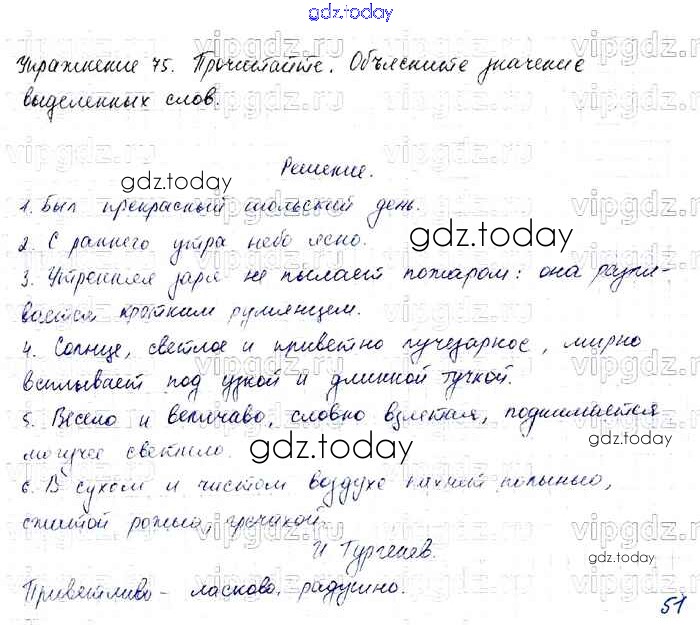 gdz.today
Упражнение 75. Прочитайте. Объясните значение
выделенных слов.
Решение.
gdz.today
1. Был прекрасный июльский день.
gdz.today
2. С раннего утра небо ясно.
3. Утренняя заря не пылает пожаром: она разли-
вается кротким румянцем.
4. Солнце, светлое и приветно лучезарное, мирно
всплывает под узкой и длинной тучкой.
5. Весело и величаво, словно взлетая, поднимается
могучее светило.
gdz.today
6. В сухом и чистом воздухе пахнет полынью,
сжатой рожью, гречихой.
И Тургенев.
gdz.today
Приветливо - ласково, радушно.
51